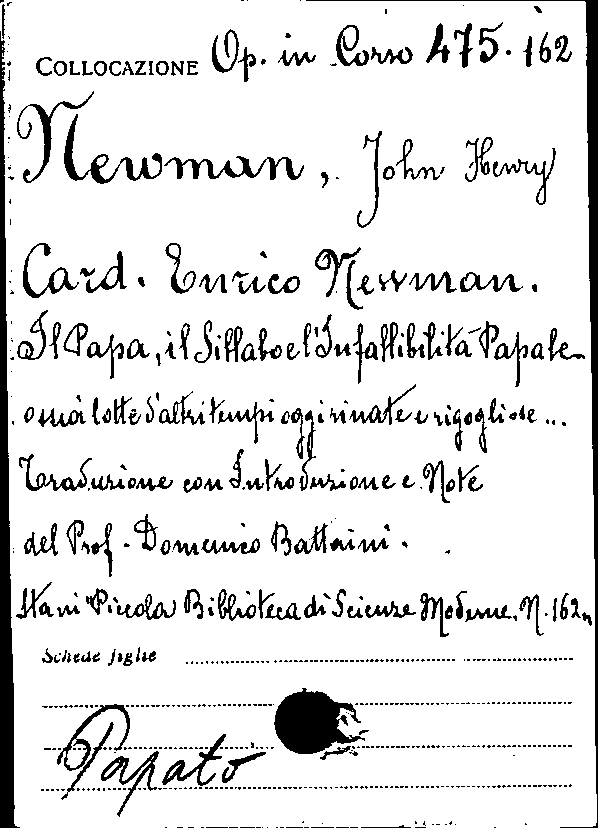 COLLOCAZIONE Op. in Corso 475. 162
Newman, John Henry
Card. Enrico Newman.
Il Papa, il Sillabo e l'Infallibilità Papale
ossia lotte d'altri tempi oggi rinate e rigogliose...
Traduzione con Introduzione e Note
del Prof. Domenico Battaini.
Sta in "Piccola Biblioteca di Scienze Moderne, N. 162"
Schede figlie
Papato